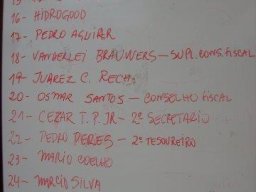 16- HIDROGOOD
17- PEDRO AGUIAR
18- VANDERLEI BRAUWERS - SUPL. CONS. FISCAL
19- JUAREZ C. RECH
20- OSMAR SANTOS - CONSELHO FISCAL
21- CEZAR T. P. JR - 2º SECRETÁRIO
22- PEDRO PERES - 2º TESOUREIRO
23- MARIO COELHO
24- MARCIO SILVA